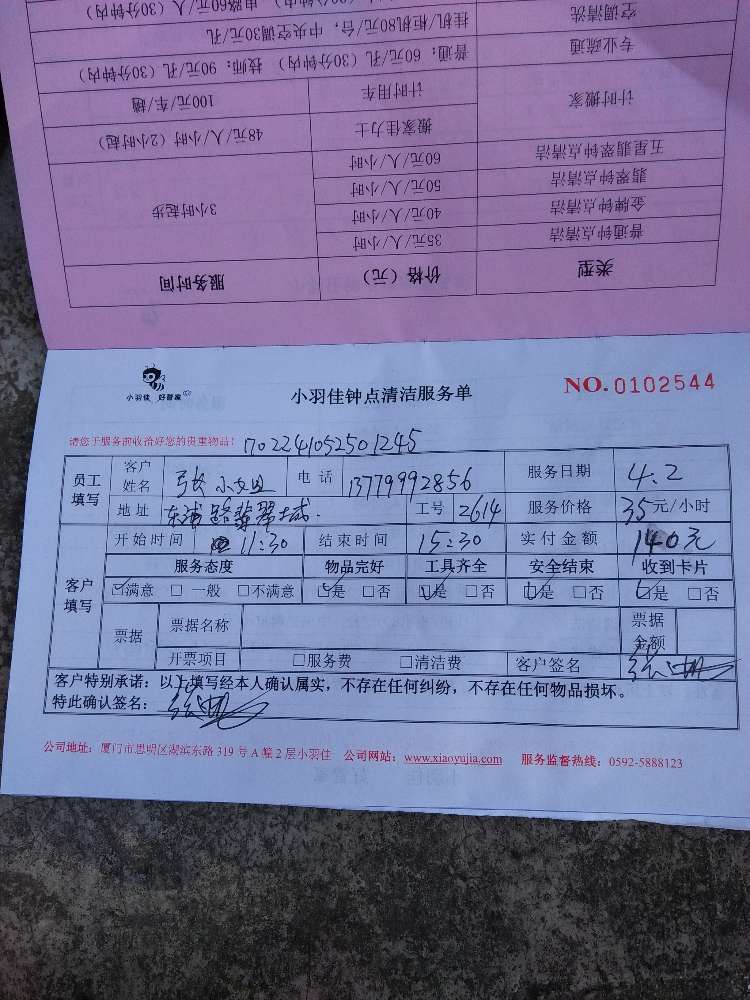 类型 价格（元） 服务时间
普通钟点清洁 35元/人/小时 3小时起步
金牌钟点清洁 40元/人/小时
翡翠钟点清洁 50元/人/小时
五星翡翠钟点清洁 60元/人/小时
计时搬家 搬家佳力士 48元/人/小时（2小时起）
计时用车 100元/车/趟
专业疏通 普通：60元/孔（30分钟内） 技师：90元/孔（30分钟内）
空调清洗 挂机/柜机80元/台，中央空调30元/孔
电路60元/人（30分钟内）
小羽佳 好管家
小羽佳钟点清洁服务单
NO.0102544
请您于服务前收拾好您的贵重物品！ 1702241052501245
员工填写 客户姓名 张小姐 电话 13779992856 服务日期 4.2
地址 东浦路翡翠城. 工号 2614 服务价格 35元/小时
客户填写 开始时间 11:30 结束时间 15:30 实付金额 140元
服务态度 物品完好 工具齐全 安全结束 收到卡片
☑满意 □一般 □不满意 ☑是 □否 ☑是 □否 ☑是 □否 ☑是 □否
票据 票据名称 票据金额
开票项目 □服务费 □清洁费 客户签名
客户特别承诺：以上填写经本人确认属实，不存在任何纠纷，不存在任何物品损坏。
特此确认签名：
公司地址：厦门市思明区湖滨东路 319 号 A 幢 2 层小羽佳 公司网站：www.xiaoyujia.com 服务监督热线：0592-5888123